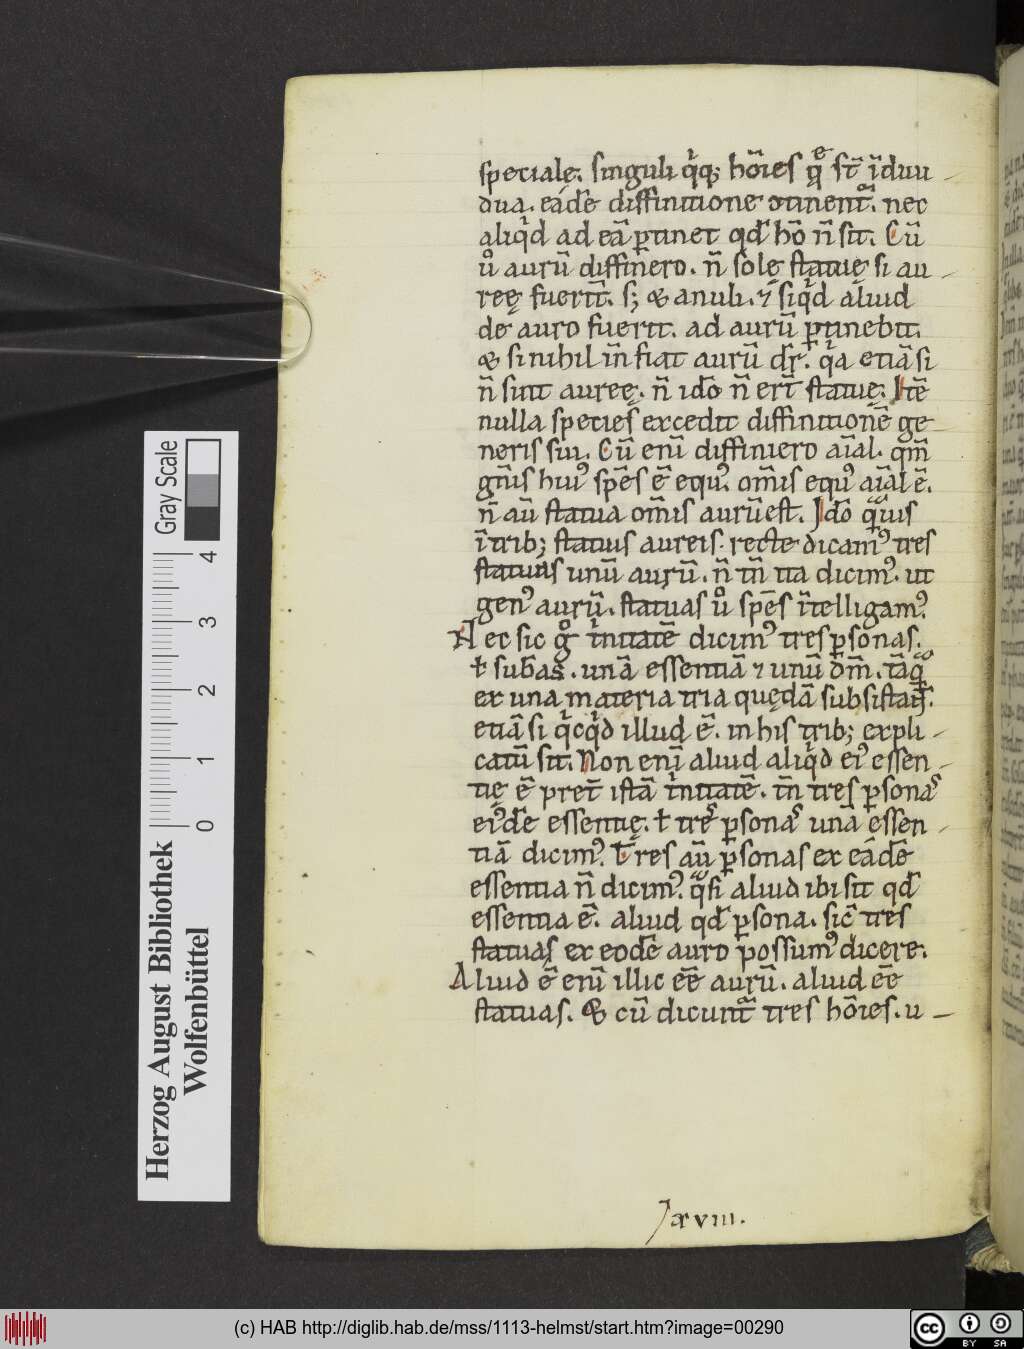 specialę. singuli q̇q; hōies q̄ę st̄ īduu
dua. eādē diffinitione ↄtinent᷑. nec
aliq̇d ad eā ꝑtinet qd̄ hō n̄ sit. Cū
ů aurū diffinero. n̄ solę statuę si au
reę fuerit̄. s; & anuli. ⁊ siq̇d aliud
de auro fuerit. ad aurū ꝑtinebit.
& si nihil īn fiat aurū dr̄. q̇a etiā si
n̄ sunt aureę. n̄ idō n̄ er̄t statuę. Itē
nulla species excedit diffinitionē ge
neris sui. Cū enī diffiniero aīal. qm̄
gn̄is huiꝰ spēs ē equꝰ. om̄is equꝰ aīal ē.
n̄ aū statua om̄is aurū est. Idō q̄uis
ī trib; statuis aureis. recte dicamꝰ tres
statuas unū aurū. n̄ tn̄ ita dicimꝰ. ut
genꝰ aurū. statuas ů spēs ītelligamꝰ.
Nec sic gͦ t̍nitatē dicimꝰ tres ꝑsonas.
ł subās. unā essentiā ⁊ unū dm̄. tāq̄
ex una materia tria quędā subsistāt.
etiā si q̇cq̇d illud ē. in his trib; expli
catū sit. Non enī aliud aliq̇d eiꝰ essen
tię ē pret̄ istā t̍nitatē. tn̄ tres ꝑsonas
eiꝰdē essentię. ł tres ꝑsonas unā essen
tiā dicimꝰ. Tres aū ꝑsonas ex eādē
essentia n̄ dicimꝰ. q̄si aliud ibi sit qd̄
essentia ē. aliud qd̄ ꝑsona. sic̄ tres
statuas ex eodē auro possumꝰ dicere.
Aliud ē enī illic eē aurū. aliud eē
statuas. & cū dicunt᷑ tres hōies. u
xviii.
Herzog August Bibliothek
Wolfenbüttel
Gray Scale
0 1 2 3 4
(c) HAB http://diglib.hab.de/mss/1113-helmst/start.htm?image=00290
cc BY SA